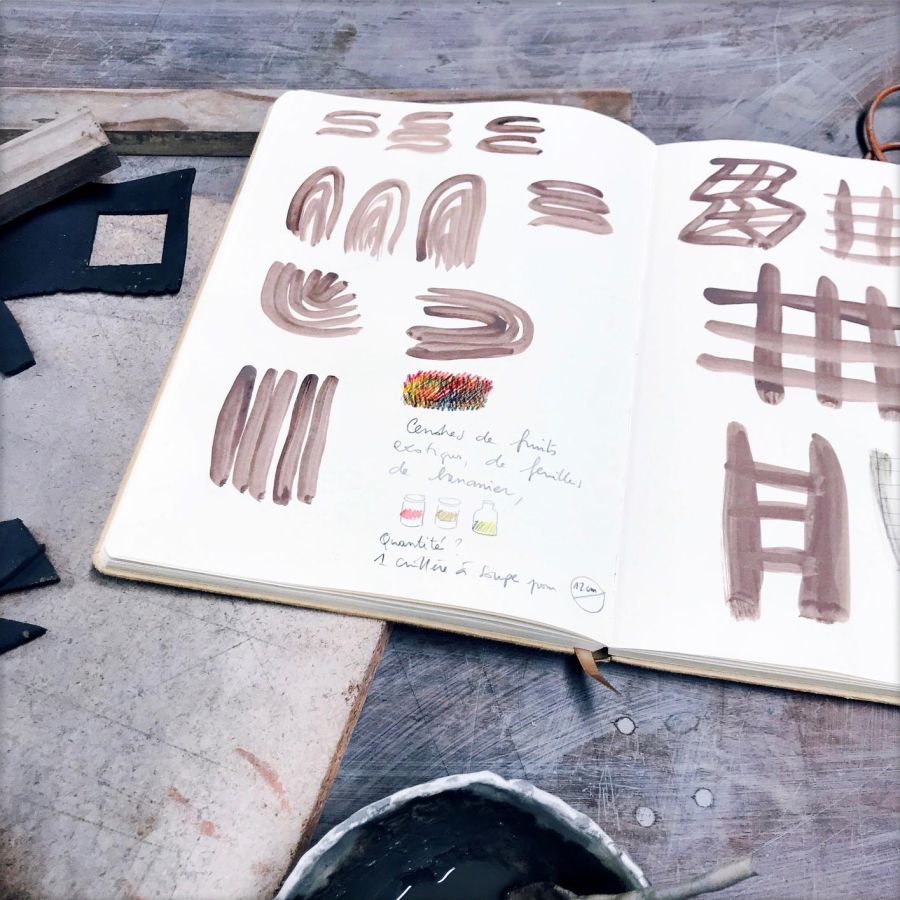 Cendres de fruits
exotiques, de feuilles
de bananier,
Quantité ?
1 cuillère à soupe pour
12 cm